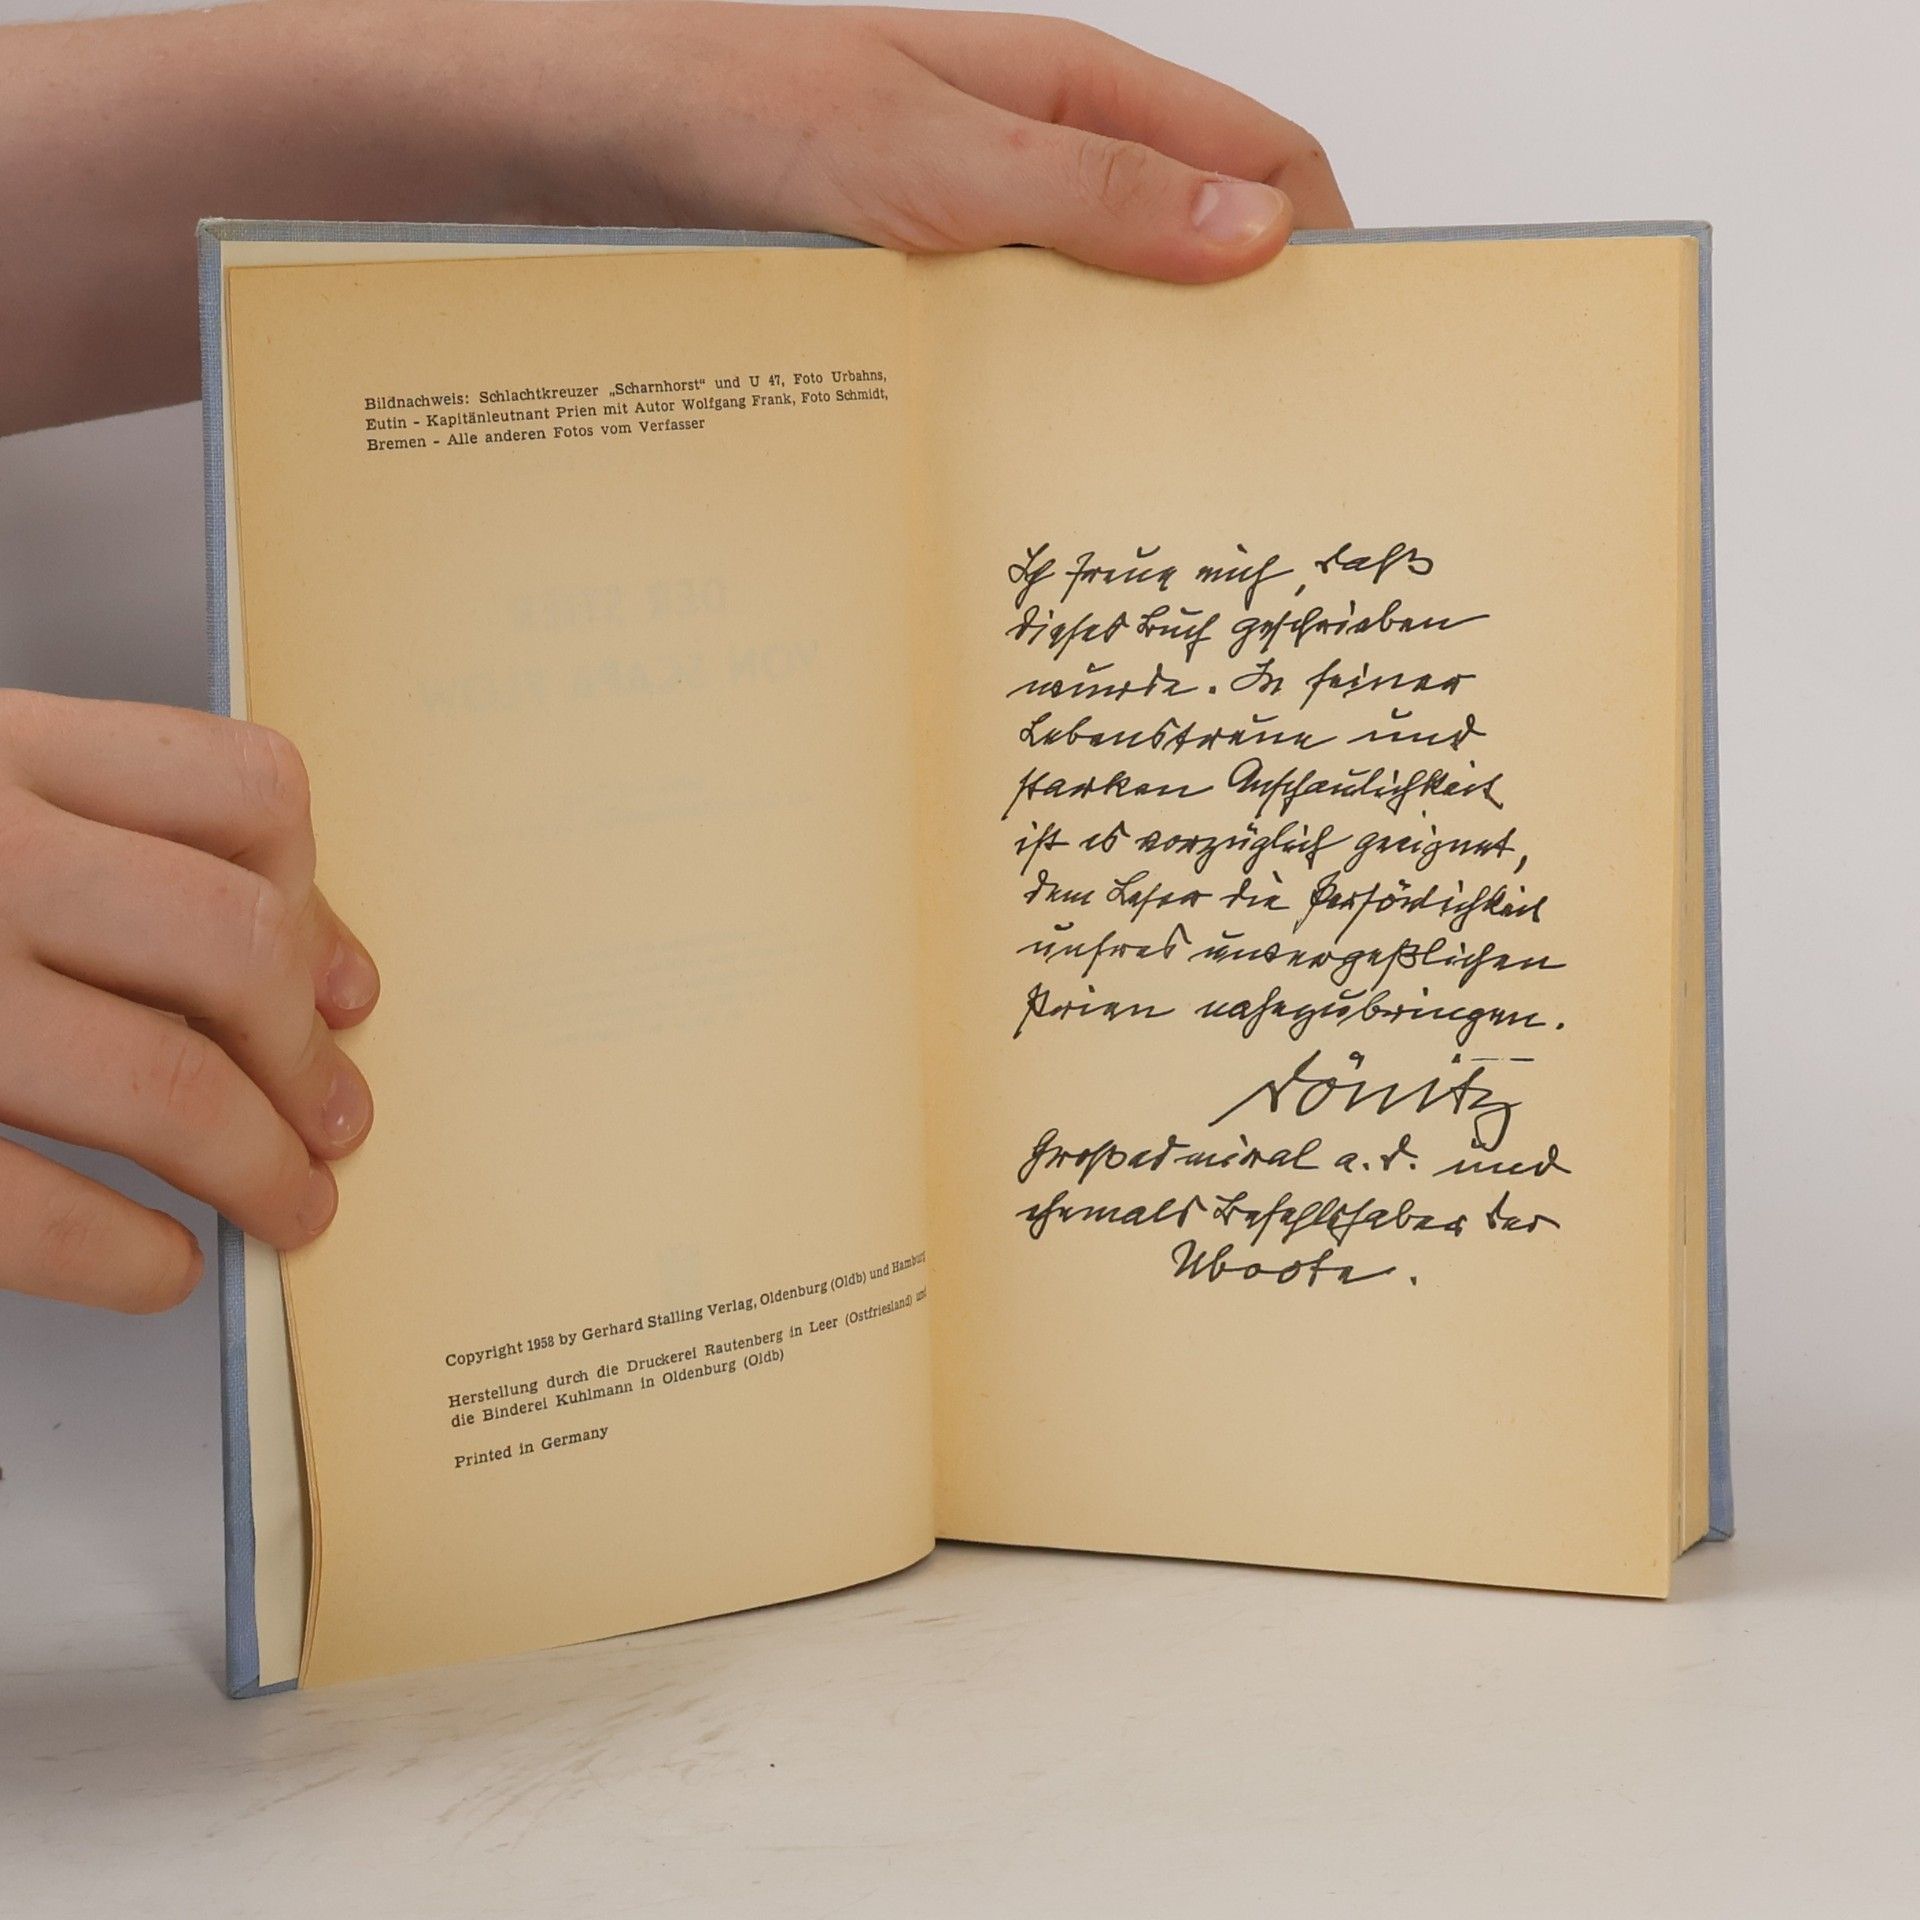 Bildnachweis: Schlachtkreuzer „Scharnhorst“ und U 47, Foto Urbahns,
Eutin - Kapitänleutnant Prien mit Autor Wolfgang Frank, Foto Schmidt,
Bremen - Alle anderen Fotos vom Verfasser
Copyright 1958 by Gerhard Stalling Verlag, Oldenburg (Oldb) und Hamburg
Herstellung durch die Druckerei Rautenberg in Leer (Ostfriesland) und
die Binderei Kuhlmann in Oldenburg (Oldb)
Printed in Germany
Ich freue mich, daß
dieses Buch geschrieben
wurde. In seiner
Lebenstreue und
starken Anschaulichkeit
ist es vorzüglich geeignet,
dem Leser die Persönlichkeit
unsres unvergeßlichen
Prien nahezubringen.
Dönitz
Großadmiral a. D. und
ehemals Befehlshaber der
Uboote.